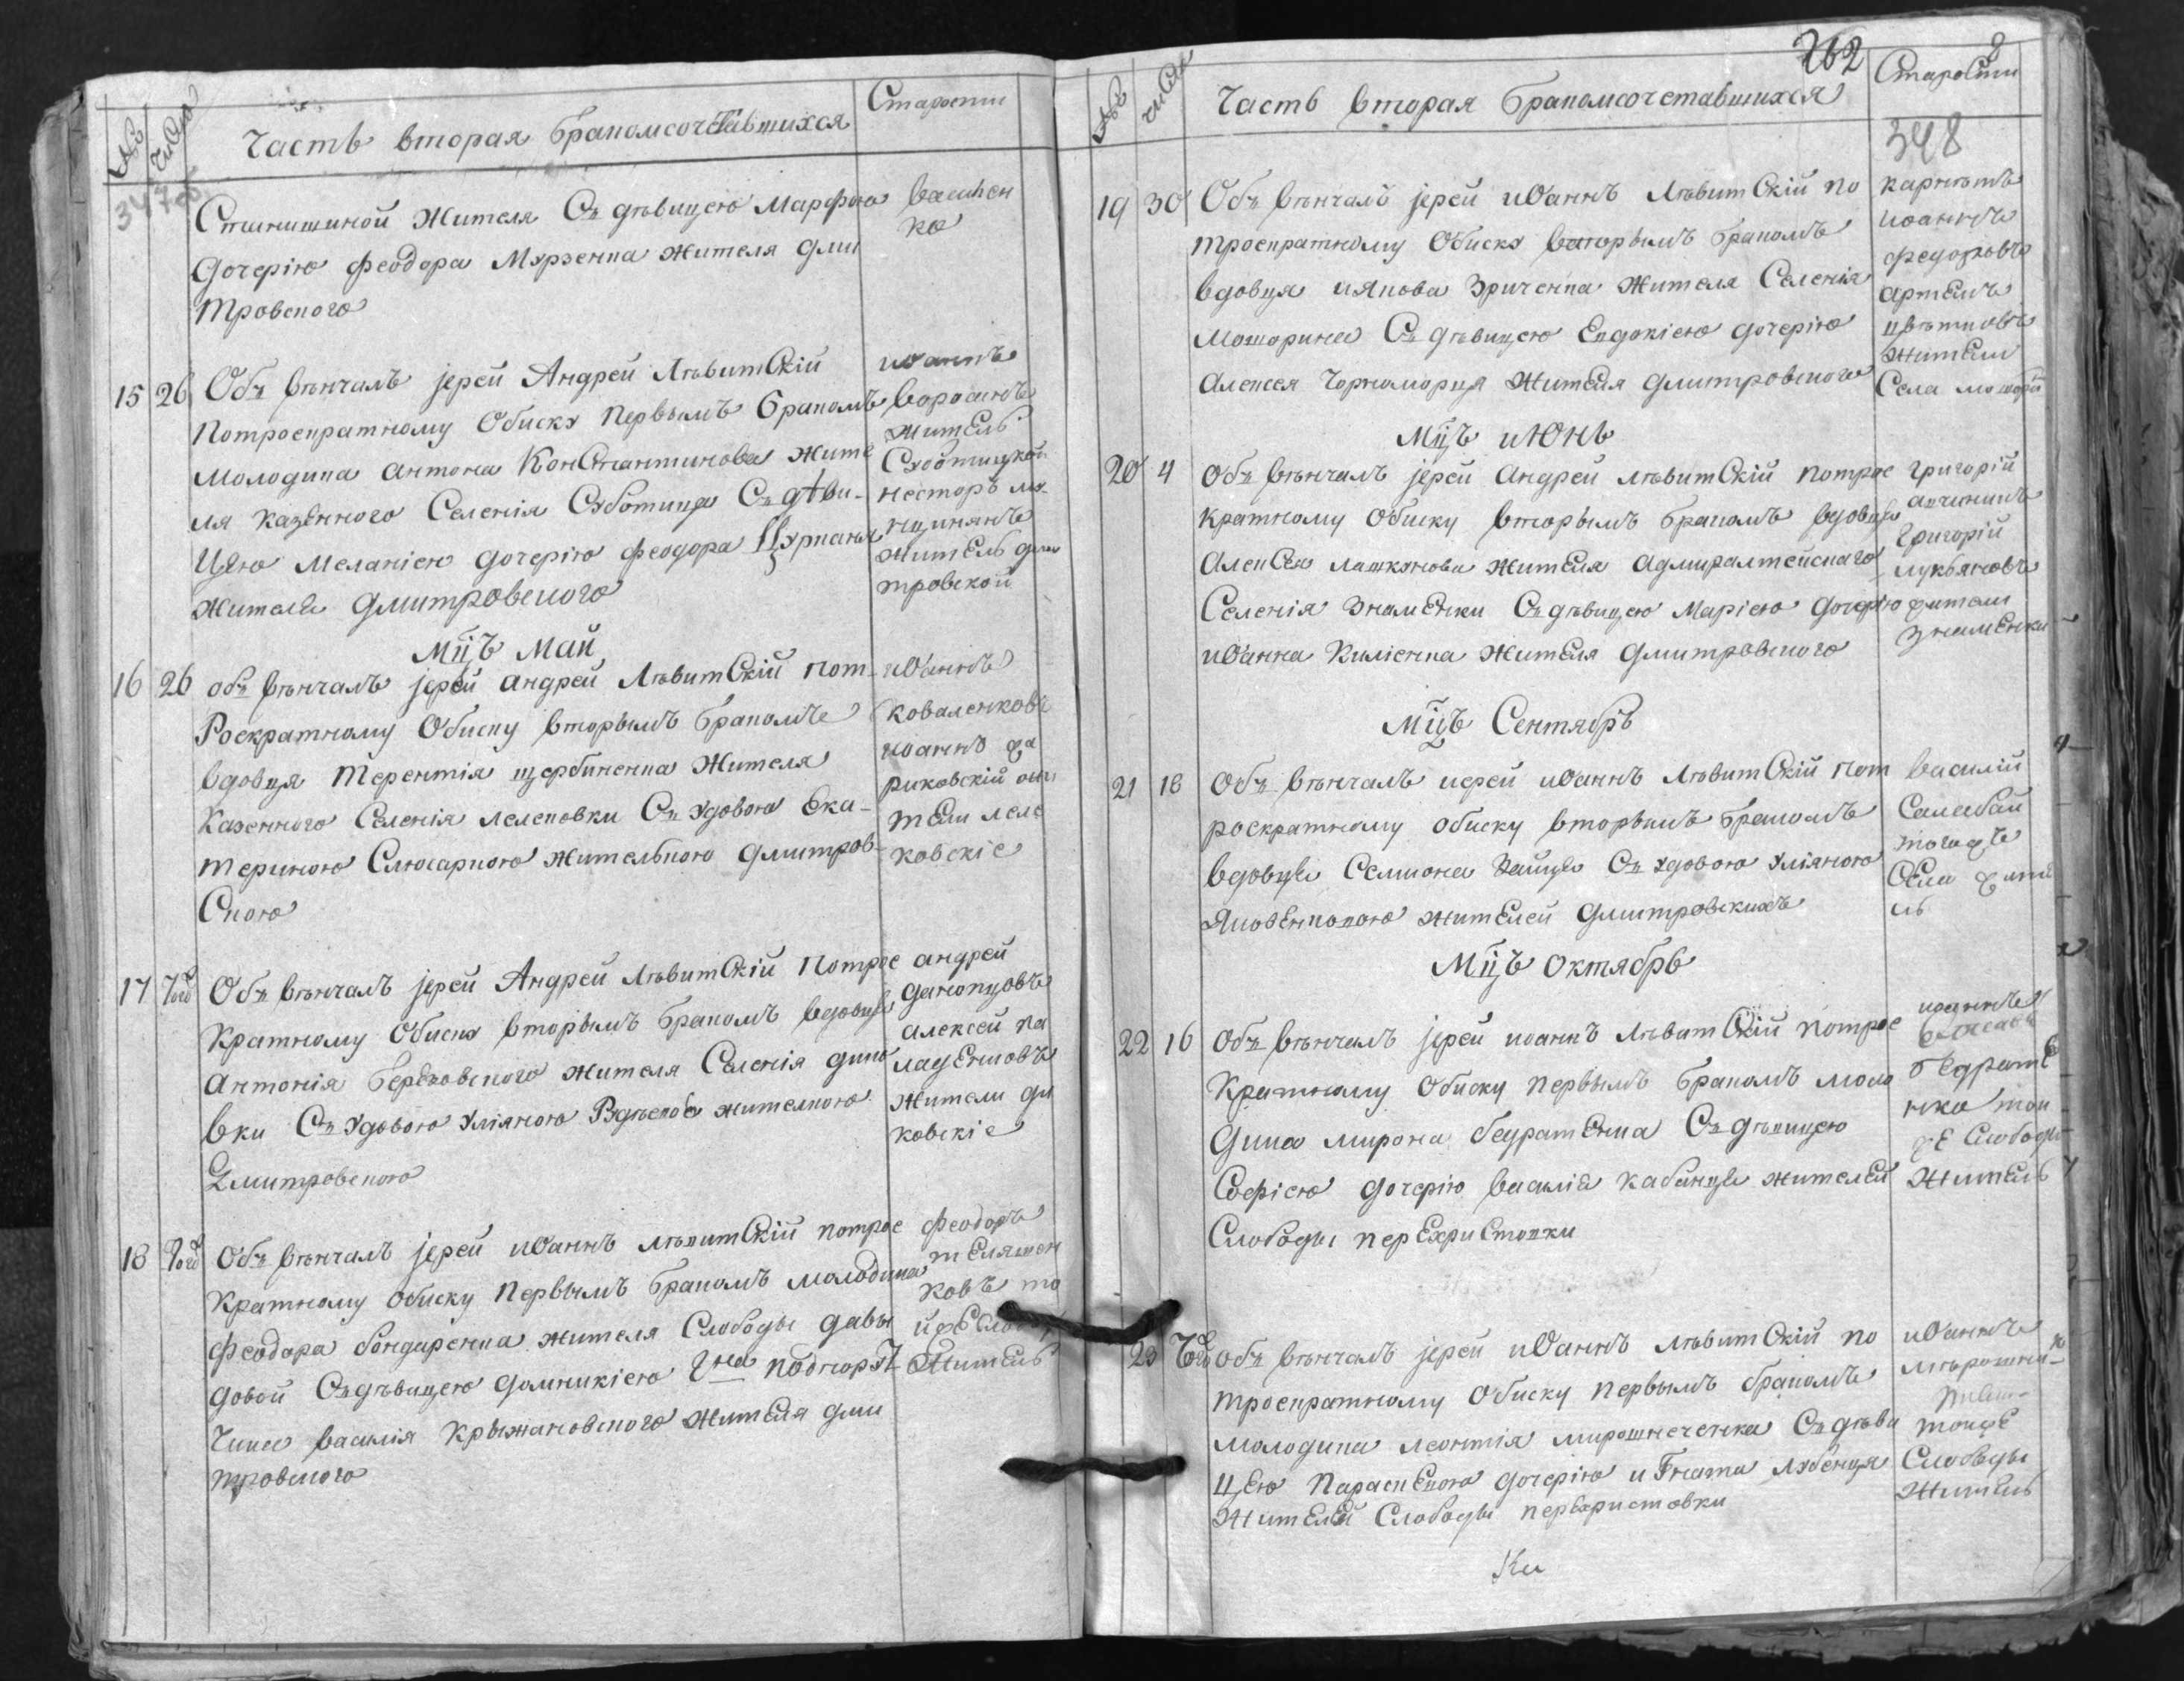 №
число
Часть вторая бракомсочетавшихся
Старости
347 об
Стинишиной жителя Съ дѣвицею Марфою
дочерію феодора Мурзенка жителя дми
тровского
вашен
ко
15 26 Объ вѣнчалъ јерей Андрей Лѣвитскій
потроекратному Обиску первымъ бракомъ
молодика антона Константинова жите
ля казенного Селенія Суботица Съ дѣви-
цею Меланіею дочерію феодора
жителя дмитровского
иоаннъ
житель
Суботицкой
несторъ
житель дми
тровской
Мцъ Май
16 26 объ вѣнчалъ јерей андрей Лѣвитскій пот-
роекратному Обиску вторымъ бракомъ
вдовця терентія щербиненка жителя
казенного Селенія лелековки Съ удовою Ека-
териною Слюсаркою жителькою дмитров-
скою
иоаннъ
коваленковъ
иоаннъ
риковскій жи
тели леле
ковскіе
17 того Объ вѣнчалъ јерей Андрей Лѣвитскій потрое
кратному Обиску вторымъ бракомъ вдовця
антонія березовского жителя Селенія дико
вки Съ удовою уліяною жителкою
дмитровскою
андрей
алексей па
ладенковъ
жители ди
ковскіе
18 того Объ вѣнчалъ јерей иоаннъ лѣвитскій потрое
кратному обиску первымъ бракомъ молодика
феодора бондаренка жителя Слободы давы
довой Съ дѣвицею домникіею Гна подпору
чика василія крыжановского жителя дми
тровского
феодоръ
теляшен
ковъ то
йже
житель
№
число
Часть вторая бракомсочетавшихся
262
Старости
2
348
19 30 Объ вѣнчалъ јерей иоаннъ Лѣвитскій по
троекратному Обиску вторымъ бракомъ
вдовця иякова Зриченка жителя Селенія
Мошорина Съ дѣвицею Евдокіею дочерію
алексея Чорноморця жителя дмитровского
карнѣтъ
иоаннъ
федоровъ
артемъ
цвѣтковъ
жители
Села мошори
Мцъ июнь
20 4 Объ вѣнчалъ јерей андрей лѣвитскій потрое
кратному обиску вторымъ бракомъ вдовця
алексея лашкунова жителя адмиралтейскаго
Селенія Знаменки Съ дѣвицею Маріею дочерію
иоанна Киліенка жителя дмитровского
григорій
григорій
лукьяновъ
жители
знаменки
Мцъ Сентябрь
21 18 Объ вѣнчалъ иерей иоаннъ Лѣвитскій пот
роекратному обиску вторымъ бракомъ
вдовця Семиона Зайця Съ удовою уліяною
Яковенковою жителей дмитровскихъ
василій
Саласай
тогожъ
Села жите
ль
Мцъ октябрь
22 16 Объ вѣнчалъ јерей иоаннъ Лѣвитскій потрое
кратному обиску первымъ бракомъ моло
дика мирона бедратенка Съ дѣвицею
Софіею дочерію василія кабанця жителей
Слободы перехристовки
иоаннъ
бедрате
нко той
же Слободы
житель
23 того объ вѣнчалъ јерей иоаннъ лѣвитскій по
троекратному обиску первымъ бракомъ
молодика леонтія мирошнеченка Съ дѣви
цею параскевою дочерію игната лубенця
жителей Слободы перехристовки
иоаннъ
мѣрошни
тойже
Слободы
житель
Ки